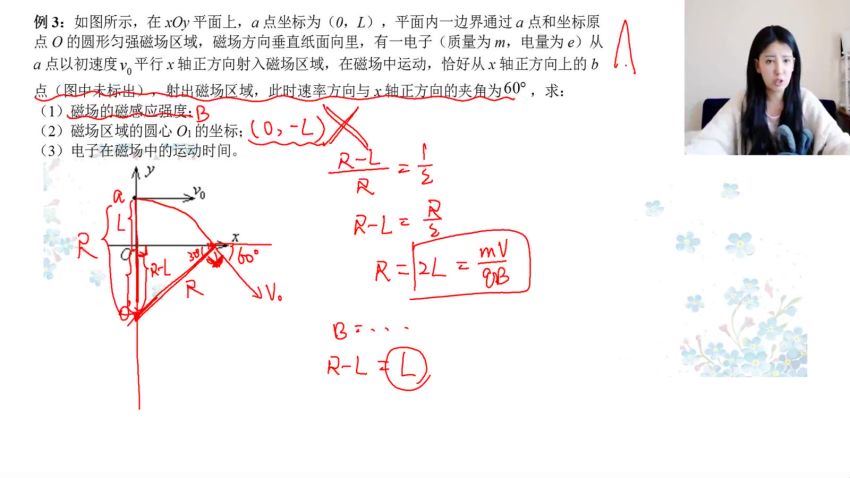 例 3：如图所示，在 xOy 平面上，a 点坐标为（0，L），平面内一边界通过 a 点和坐标原
点 O 的圆形匀强磁场区域，磁场方向垂直纸面向里，有一电子（质量为 m，电量为 e）从
a 点以初速度 v₀ 平行 x 轴正方向射入磁场区域，在磁场中运动，恰好从 x 轴正方向上的 b
点（图中未标出），射出磁场区域，此时速率方向与 x 轴正方向的夹角为 60°，求：
（1）磁场的磁感应强度；B
（2）磁场区域的圆心 O₁ 的坐标；(0, -L)
（3）电子在磁场中的运动时间。
R-L/R = 1/2
R-L = R/2
R = 2L = mV/qB
B = ...
R-L = L
y
a
v₀
L
R
O
x
30°
60°
R-L
R
O'
V₀